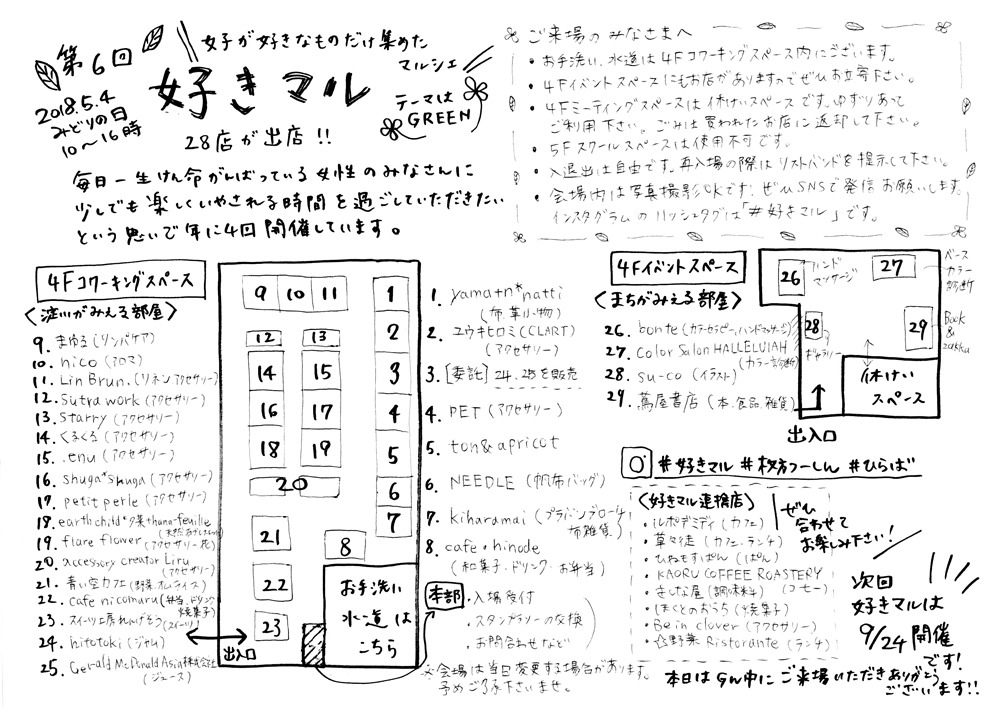 第6回
2018.5.4
みどりの日
10～16時
女子が好きなものだけ集めた
マルシェ
好きマル
テーマは
GREEN
28店が出店!!
毎日一生けん命がんばっている女性のみなさんに
少しでも楽しくいやされる時間を過ごしていただきたい
という思いで年に4回開催しています。
ご来場のみなさまへ
・お手洗い、水道は4Fコワーキングスペース内にございます。
・4Fイベントスペースにもお店がありますのでぜひお立寄下さい。
・4Fミーティングスペースは休けいスペースです。ゆずりあって
ご利用下さい。ごみは買われたお店に返却して下さい。
・5Fスクールスペースは使用不可です。
・入退出は自由です。再入場の際はリストバンドを提示して下さい。
・会場内は写真撮影OKです!ぜひSNSで発信お願いします。
インスタグラムのハッシュタグは「#好きマル」です。
4Fコワーキングスペース
<淀川がみえる部屋>
9. まゆる(リンパケア)
10. nico(アロマ)
11. Lin Brun.(リネンアクセサリー)
12. Sutra work(アクセサリー)
13. Starry(アクセサリー)
14. くるくる(アクセサリー)
15. .enu(アクセサリー)
16. shuga*shuga(アクセサリー)
17. petit perle(アクセサリー)
18. earth child*夕菜+hana-feuille
19. flare flower(アクセサリー・花)
20. accessory creator Liru
(アクセサリー)
21. 青い空カフェ(野菜・オムライス)
22. cafe nicomaru(弁当・ドリンク
焼菓子)
23. スイーツ工房れんげそう(スイーツ)
24. hitotoki(ジャム)
25. Gerald McDonald Asia株式会社
(ジュース)
9 10 11 1
12 13 2
14 15 3
16 17 4
18 19 5
20 6
21 7
8
22
23
お手洗い
水道は
こちら
出入口
1. yama+n*natti
(布・革小物)
2. ユウキヒロミ(CLART)
(アクセサリー)
3. [委託] 24, 25を販売
4. PET(アクセサリー)
5. ton&apricot
6. NEEDLE(帆布バッグ)
7. kiharamai(プラバンブローチ
布雑貨)
8. cafe・hinode
(和菓子・ドリンク・お弁当)
本部
・入場受付
・スタンプラリーの交換
・お問合わせなど
※会場は当日変更する場合があります。
予めご了承下さいませ。
4Fイベントスペース
<まちがみえる部屋>
26. bonte(カラーセラピー,ハンドマッサージ)
27. Color Salon HALLELUIAH
(カラー診断)
28. su-co(イラスト)
29. 蔦屋書店(本・食品・雑貨)
26
ハンド
マッサージ
27
カラー
診断
28
ギャラリー
29
Book
&
zakka
休けい
スペース
出入口
#好きマル #枚方つーしん #ひらば
<好きマル連携店>
ぜひ
合わせて
お楽しみ下さい!
・ルポデミディ(カフェ)
・草々徒(カフェ・ランチ)
・ひねもすぱん(ぱん)
・KAORU COFFEE ROASTERY
(コーヒー)
・きしな屋(調味料)
・ほぐとのおうち(焼菓子)
・Be in clover(アクセサリー)
・西野菜 Ristorante(ランチ)
次回
好きマルは
9/24開催
です!
本日はGW中にご来場いただきありがとう
ございます!!